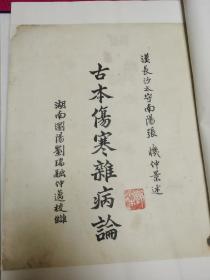 漢長沙太守南陽張機仲景述
古本傷寒雜病論
湖南瀏陽劉瑞瀜仲邁校讎